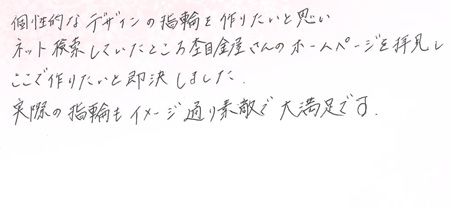 個性的なデザインの指輪を作りたいと思い
ネット検索していたところ杢目金屋さんのホームページを拝見し
ここで作りたいと即決しました.
実際の指輪もイメージ通り素敵で大満足です.